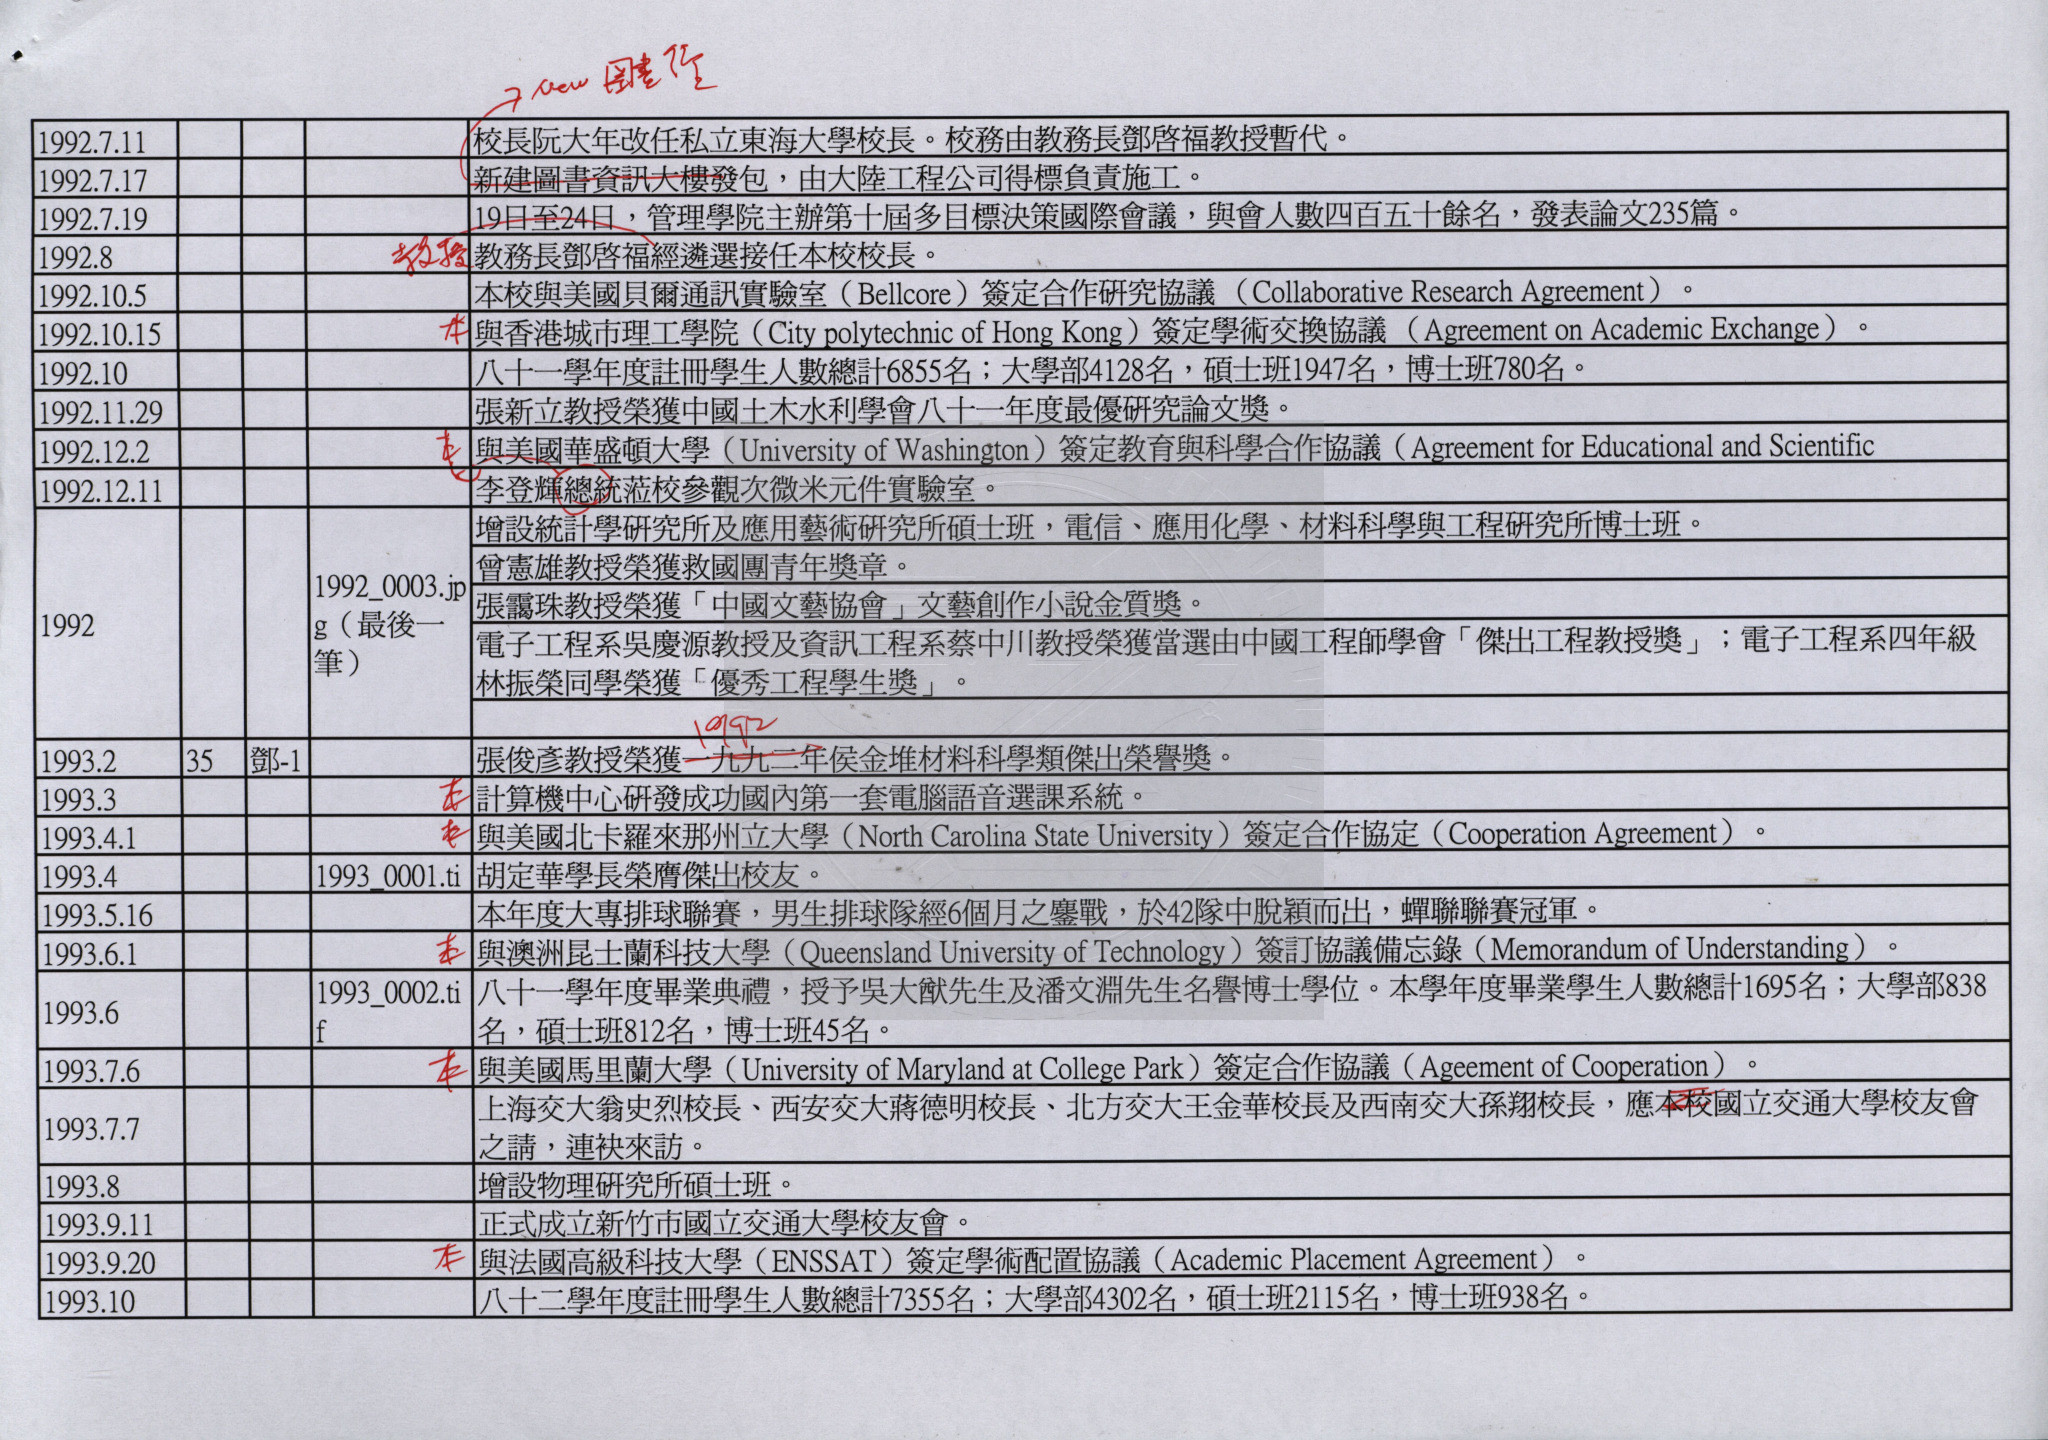 → new 圖書館
1992.7.11 校長阮大年改任私立東海大學校長。校務由教務長鄧啓福教授暫代。
1992.7.17 新建圖書資訊大樓發包，由大陸工程公司得標負責施工。
1992.7.19 19日至24日，管理學院主辦第十屆多目標決策國際會議，與會人數四百五十餘名，發表論文235篇。
1992.8 教授 教務長鄧啓福經遴選接任本校校長。
1992.10.5 本校與美國貝爾通訊實驗室（Bellcore）簽定合作研究協議 （Collaborative Research Agreement）。
1992.10.15 本 與香港城市理工學院（City polytechnic of Hong Kong）簽定學術交換協議 （Agreement on Academic Exchange）。
1992.10 八十一學年度註冊學生人數總計6855名；大學部4128名，碩士班1947名，博士班780名。
1992.11.29 張新立教授榮獲中國土木水利學會八十一年度最優研究論文獎。
1992.12.2 本 與美國華盛頓大學（University of Washington）簽定教育與科學合作協議（Agreement for Educational and Scientific
1992.12.11 李登輝總統蒞校參觀次微米元件實驗室。
增設統計學研究所及應用藝術研究所碩士班，電信、應用化學、材料科學與工程研究所博士班。
曾憲雄教授榮獲救國團青年獎章。
1992 1992_0003.jp
g（最後一
筆）
張靄珠教授榮獲「中國文藝協會」文藝創作小說金質獎。
電子工程系吳慶源教授及資訊工程系蔡中川教授榮獲當選由中國工程師學會「傑出工程教授獎」；電子工程系四年級
林振榮同學榮獲「優秀工程學生獎」。
1992
1993.2 35 鄧-1 張俊彥教授榮獲一九九二年侯金堆材料科學類傑出榮譽獎。
1993.3 本 計算機中心研發成功國內第一套電腦語音選課系統。
1993.4.1 本 與美國北卡羅來那州立大學（North Carolina State University）簽定合作協定（Cooperation Agreement）。
1993.4 1993_0001.ti 胡定華學長榮膺傑出校友。
1993.5.16 本年度大專排球聯賽，男生排球隊經6個月之鏖戰，於42隊中脫穎而出，蟬聯聯賽冠軍。
1993.6.1 本 與澳洲昆士蘭科技大學（Queensland University of Technology）簽訂協議備忘錄（Memorandum of Understanding）。
1993.6 1993_0002.ti
f
八十一學年度畢業典禮，授予吳大猷先生及潘文淵先生名譽博士學位。本學年度畢業學生人數總計1695名；大學部838
名，碩士班812名，博士班45名。
1993.7.6 本 與美國馬里蘭大學（University of Maryland at College Park）簽定合作協議（Ageement of Cooperation）。
1993.7.7 上海交大翁史烈校長、西安交大蔣德明校長、北方交大王金華校長及西南交大孫翔校長，應本校國立交通大學校友會
之請，連袂來訪。
1993.8 增設物理研究所碩士班。
1993.9.11 正式成立新竹市國立交通大學校友會。
1993.9.20 本 與法國高級科技大學（ENSSAT）簽定學術配置協議（Academic Placement Agreement）。
1993.10 八十二學年度註冊學生人數總計7355名；大學部4302名，碩士班2115名，博士班938名。